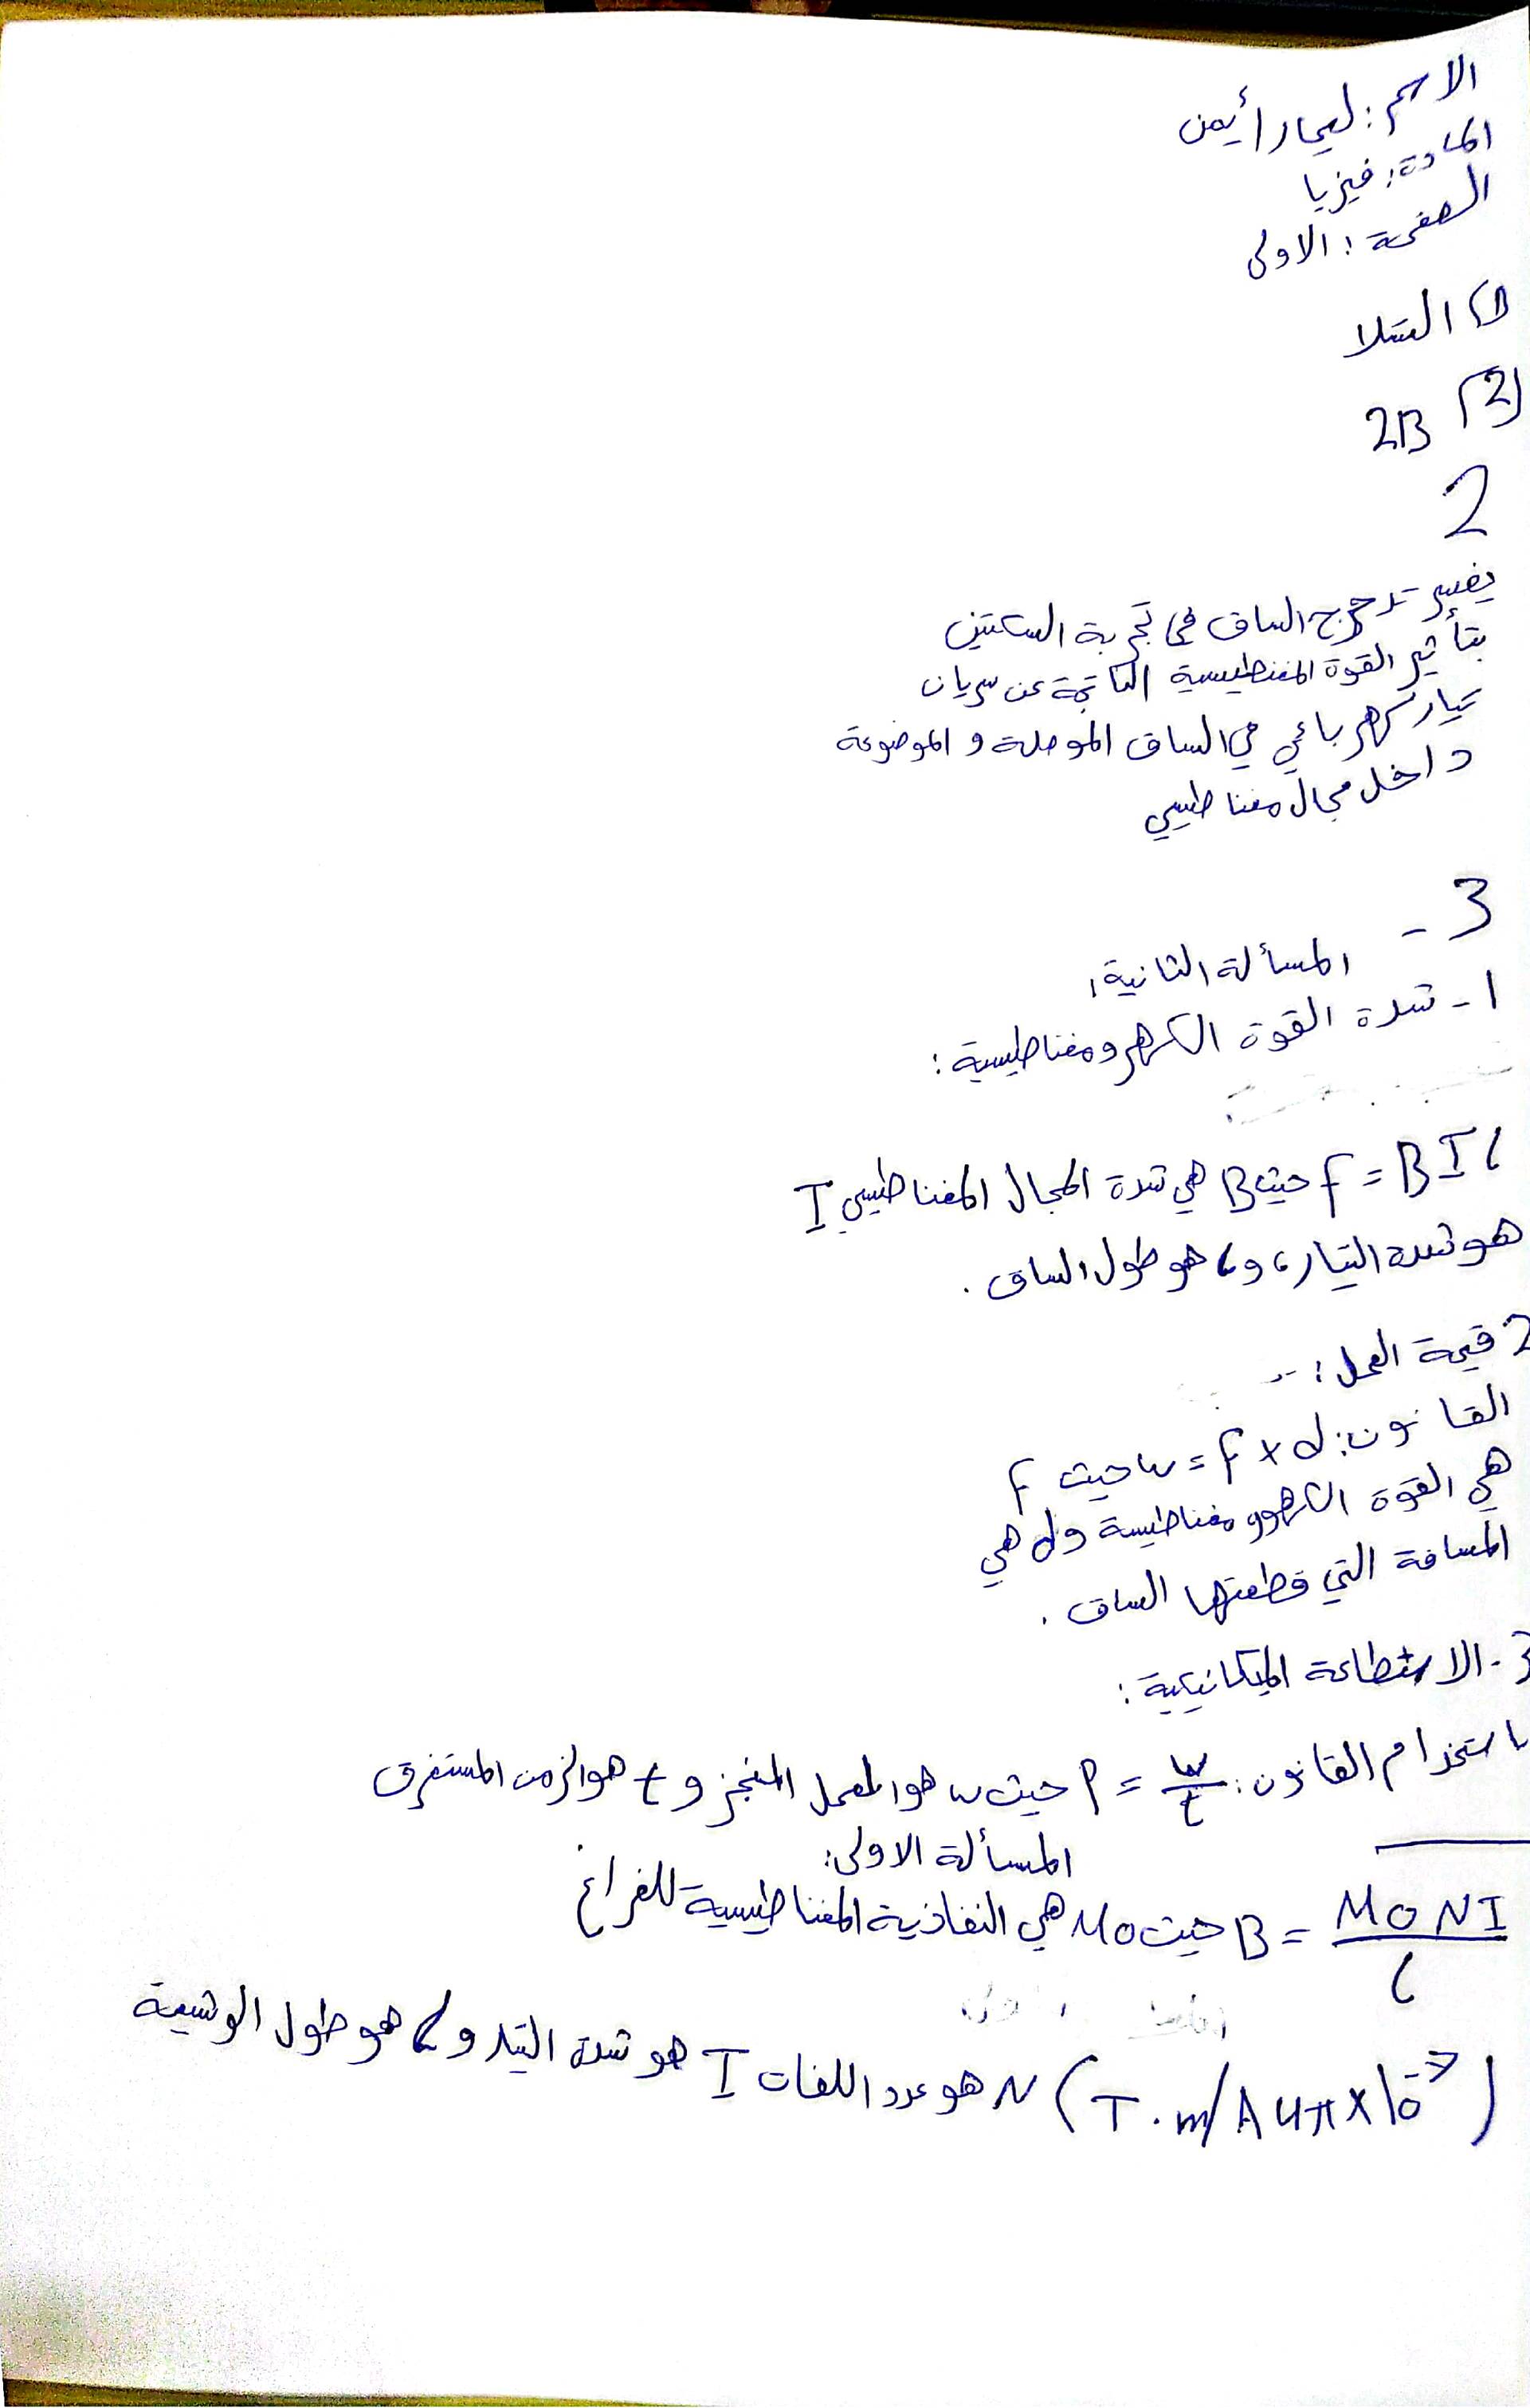 الاسم: ليمار أيمن
المادة: فيزيا
الصفحة: الاولى
1) التسلا
2) 2B
2
يفسر تدحرج الساق في تجربة السكتين
بتأثير القوة المغنطيسية الناتجة عن سريان
تيار كهربائي في الساق الموصلة و الموضوعة
داخل مجال مغناطيسي
3 -
المسألة الثانية:
1 - شدة القوة الكهرومغناطيسية:
F = B I L حيث B هي شدة المجال المغناطيسي I
هو شدة التيار، و L هو طول الساق.
2 قيمة العمل:
القانون: W = F x d حيث F
هي القوة الكهرومغناطيسة و d هي
المسافة التي قطعتها الساق.
3 - الاستطاعة الميكانيكية:
باستخدام القانون: P = W/t حيث W هو العمل المنجز و t هو الزمن المستغرق
المسألة الاولى:
B = M0 N I / L حيث M0 هي النفاذية المغناطيسية للفراغ
(T.m/A 4π x 10^-7) N هو عدد اللفات I هو شدة التيار و L هو طول الوشيعة